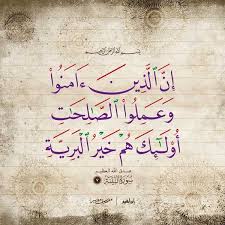 بسم الله الرحمن الرحيم
إِنَّ ٱلَّذِينَ ءَامَنُوا۟
وَعَمِلُوا۟ ٱلصَّـٰلِحَـٰتِ
أُو۟لَـٰٓئِكَ هُمْ خَيْرُ ٱلْبَرِيَّةِ
صدق الله العظيم
سورة البينة